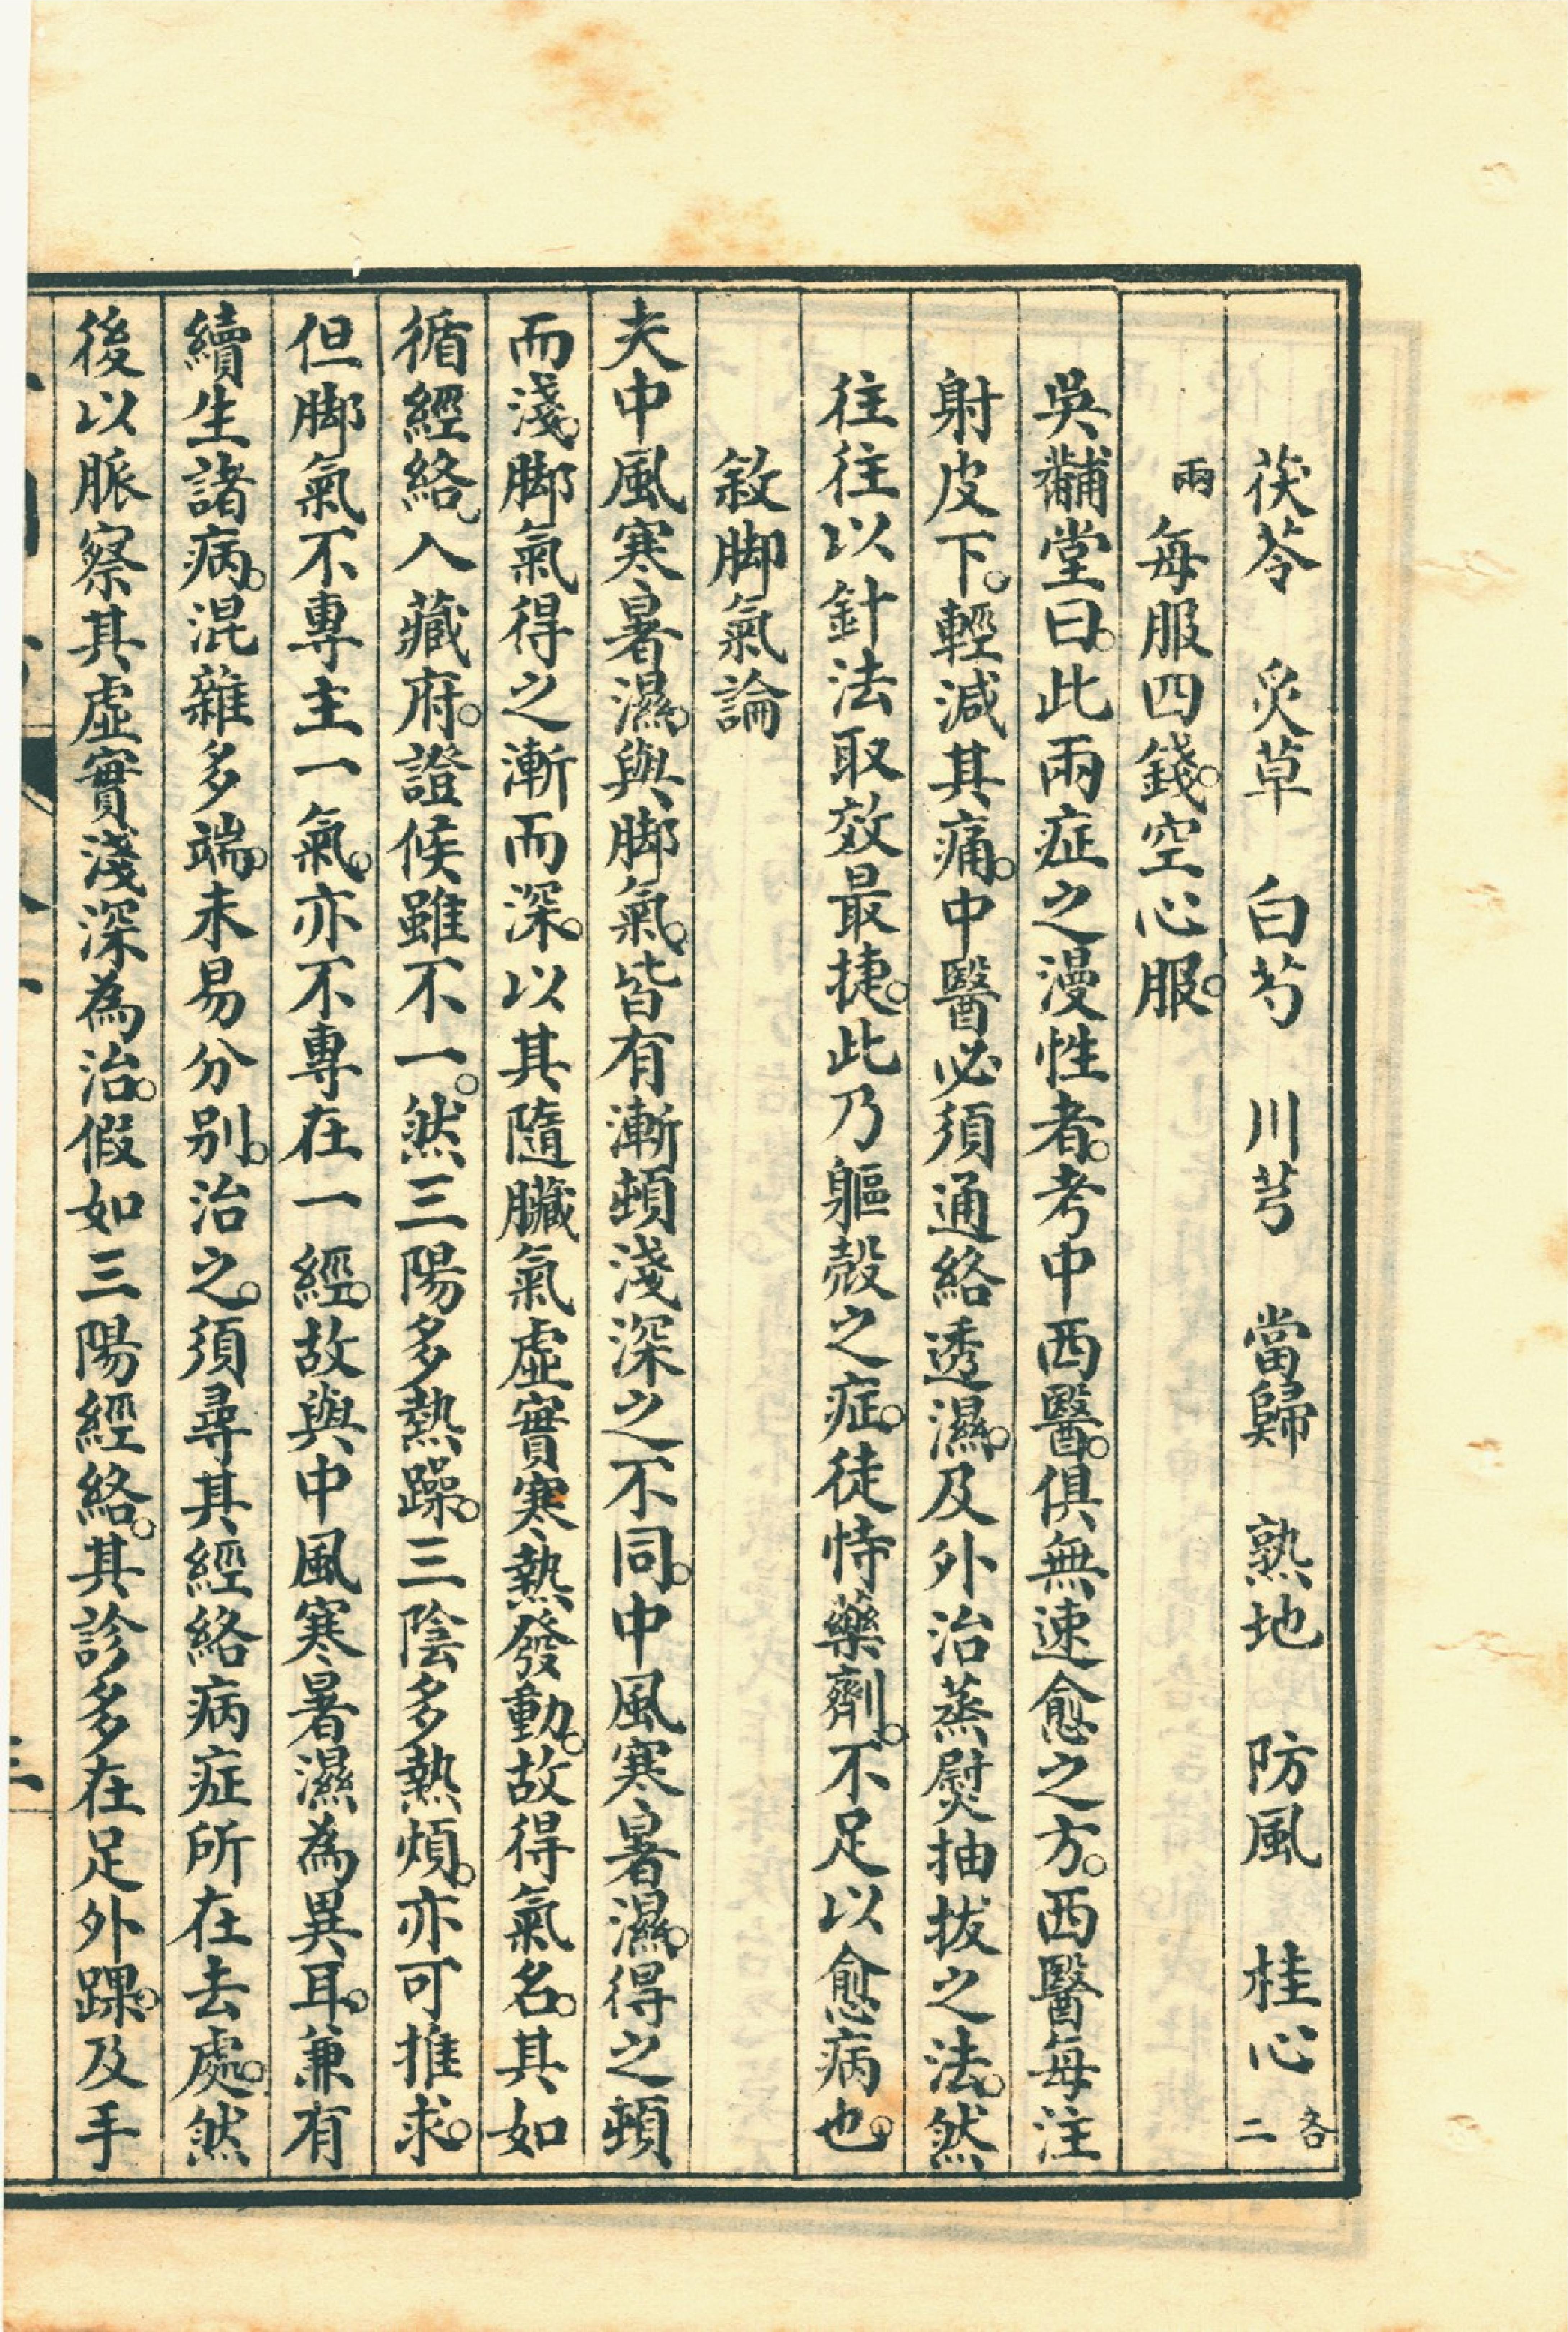 茯苓　炙草　白芍　川芎　當歸　熟地　防風　桂心各二
兩每服四錢。空心服。
吳黼堂曰。此兩症之漫性者。考中西醫。俱無速愈之方。西醫每注
射皮下。輕減其痛。中醫必須通絡透濕。及外治蒸熨抽拔之法。然
往往以針法取效最捷。此乃軀殼之症。徒恃藥劑。不足以愈病也。
敘脚氣論
夫中風寒暑濕。與脚氣。皆有漸頓淺深之不同。中風寒暑濕。得之頓
而淺。脚氣得之漸而深。以其隨臟氣虛實寒熱發動。故得氣名。其如
循經絡、入藏府。證候雖不一。然三陽多熱躁。三陰多熱煩。亦可推求。
但脚氣不專主一氣。亦不專在一經。故與中風寒暑濕為異耳。兼有
續生諸病。混雜多端。未易分別。治之。須尋其經絡病症所在去處。然
後以脈察其虛實淺深為治。假如三陽經絡。其診多在足外踝。及手
三